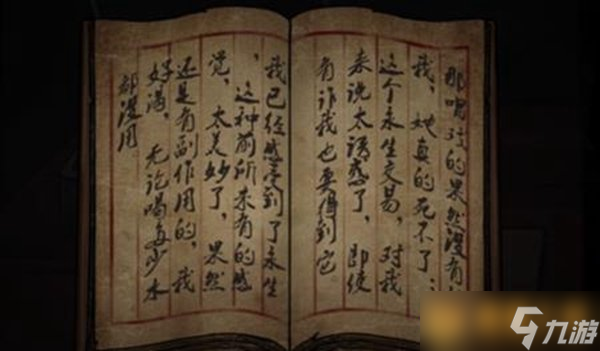 那唱戏的果然没有
我，她真的死不了；
这个永生交易，对我
来说太诱惑了，即使
有诈我也要得到它
我已经感受到了永生
，这种前所未有的感
觉，太美妙了，果然
还是有副作用的，我
好渴，无论喝多少水
都没用
九游